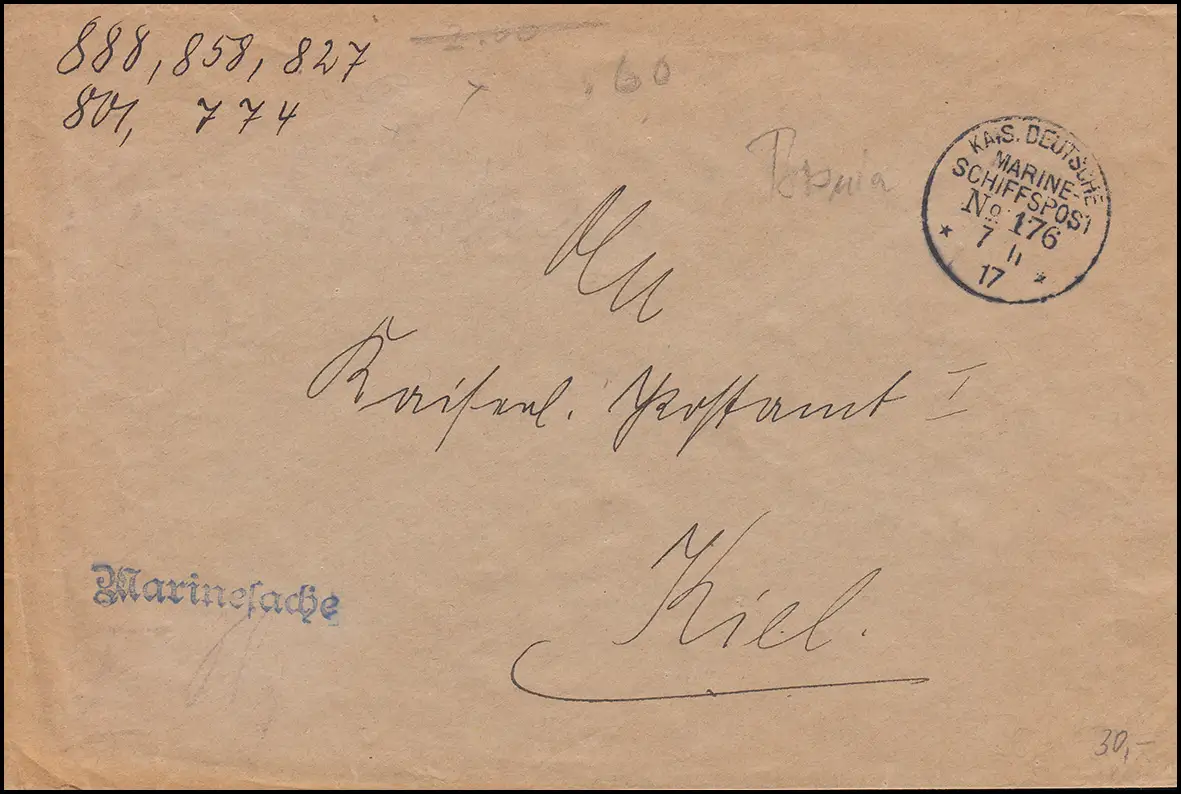 888, 858, 827
801, 774
2.00
60
KAIS. DEUTSCHE
MARINE-
SCHIFFSPOST
No 176
7 11
17
An
Kaiserl. Postamt I
Kiel.
Marinesache
30,-